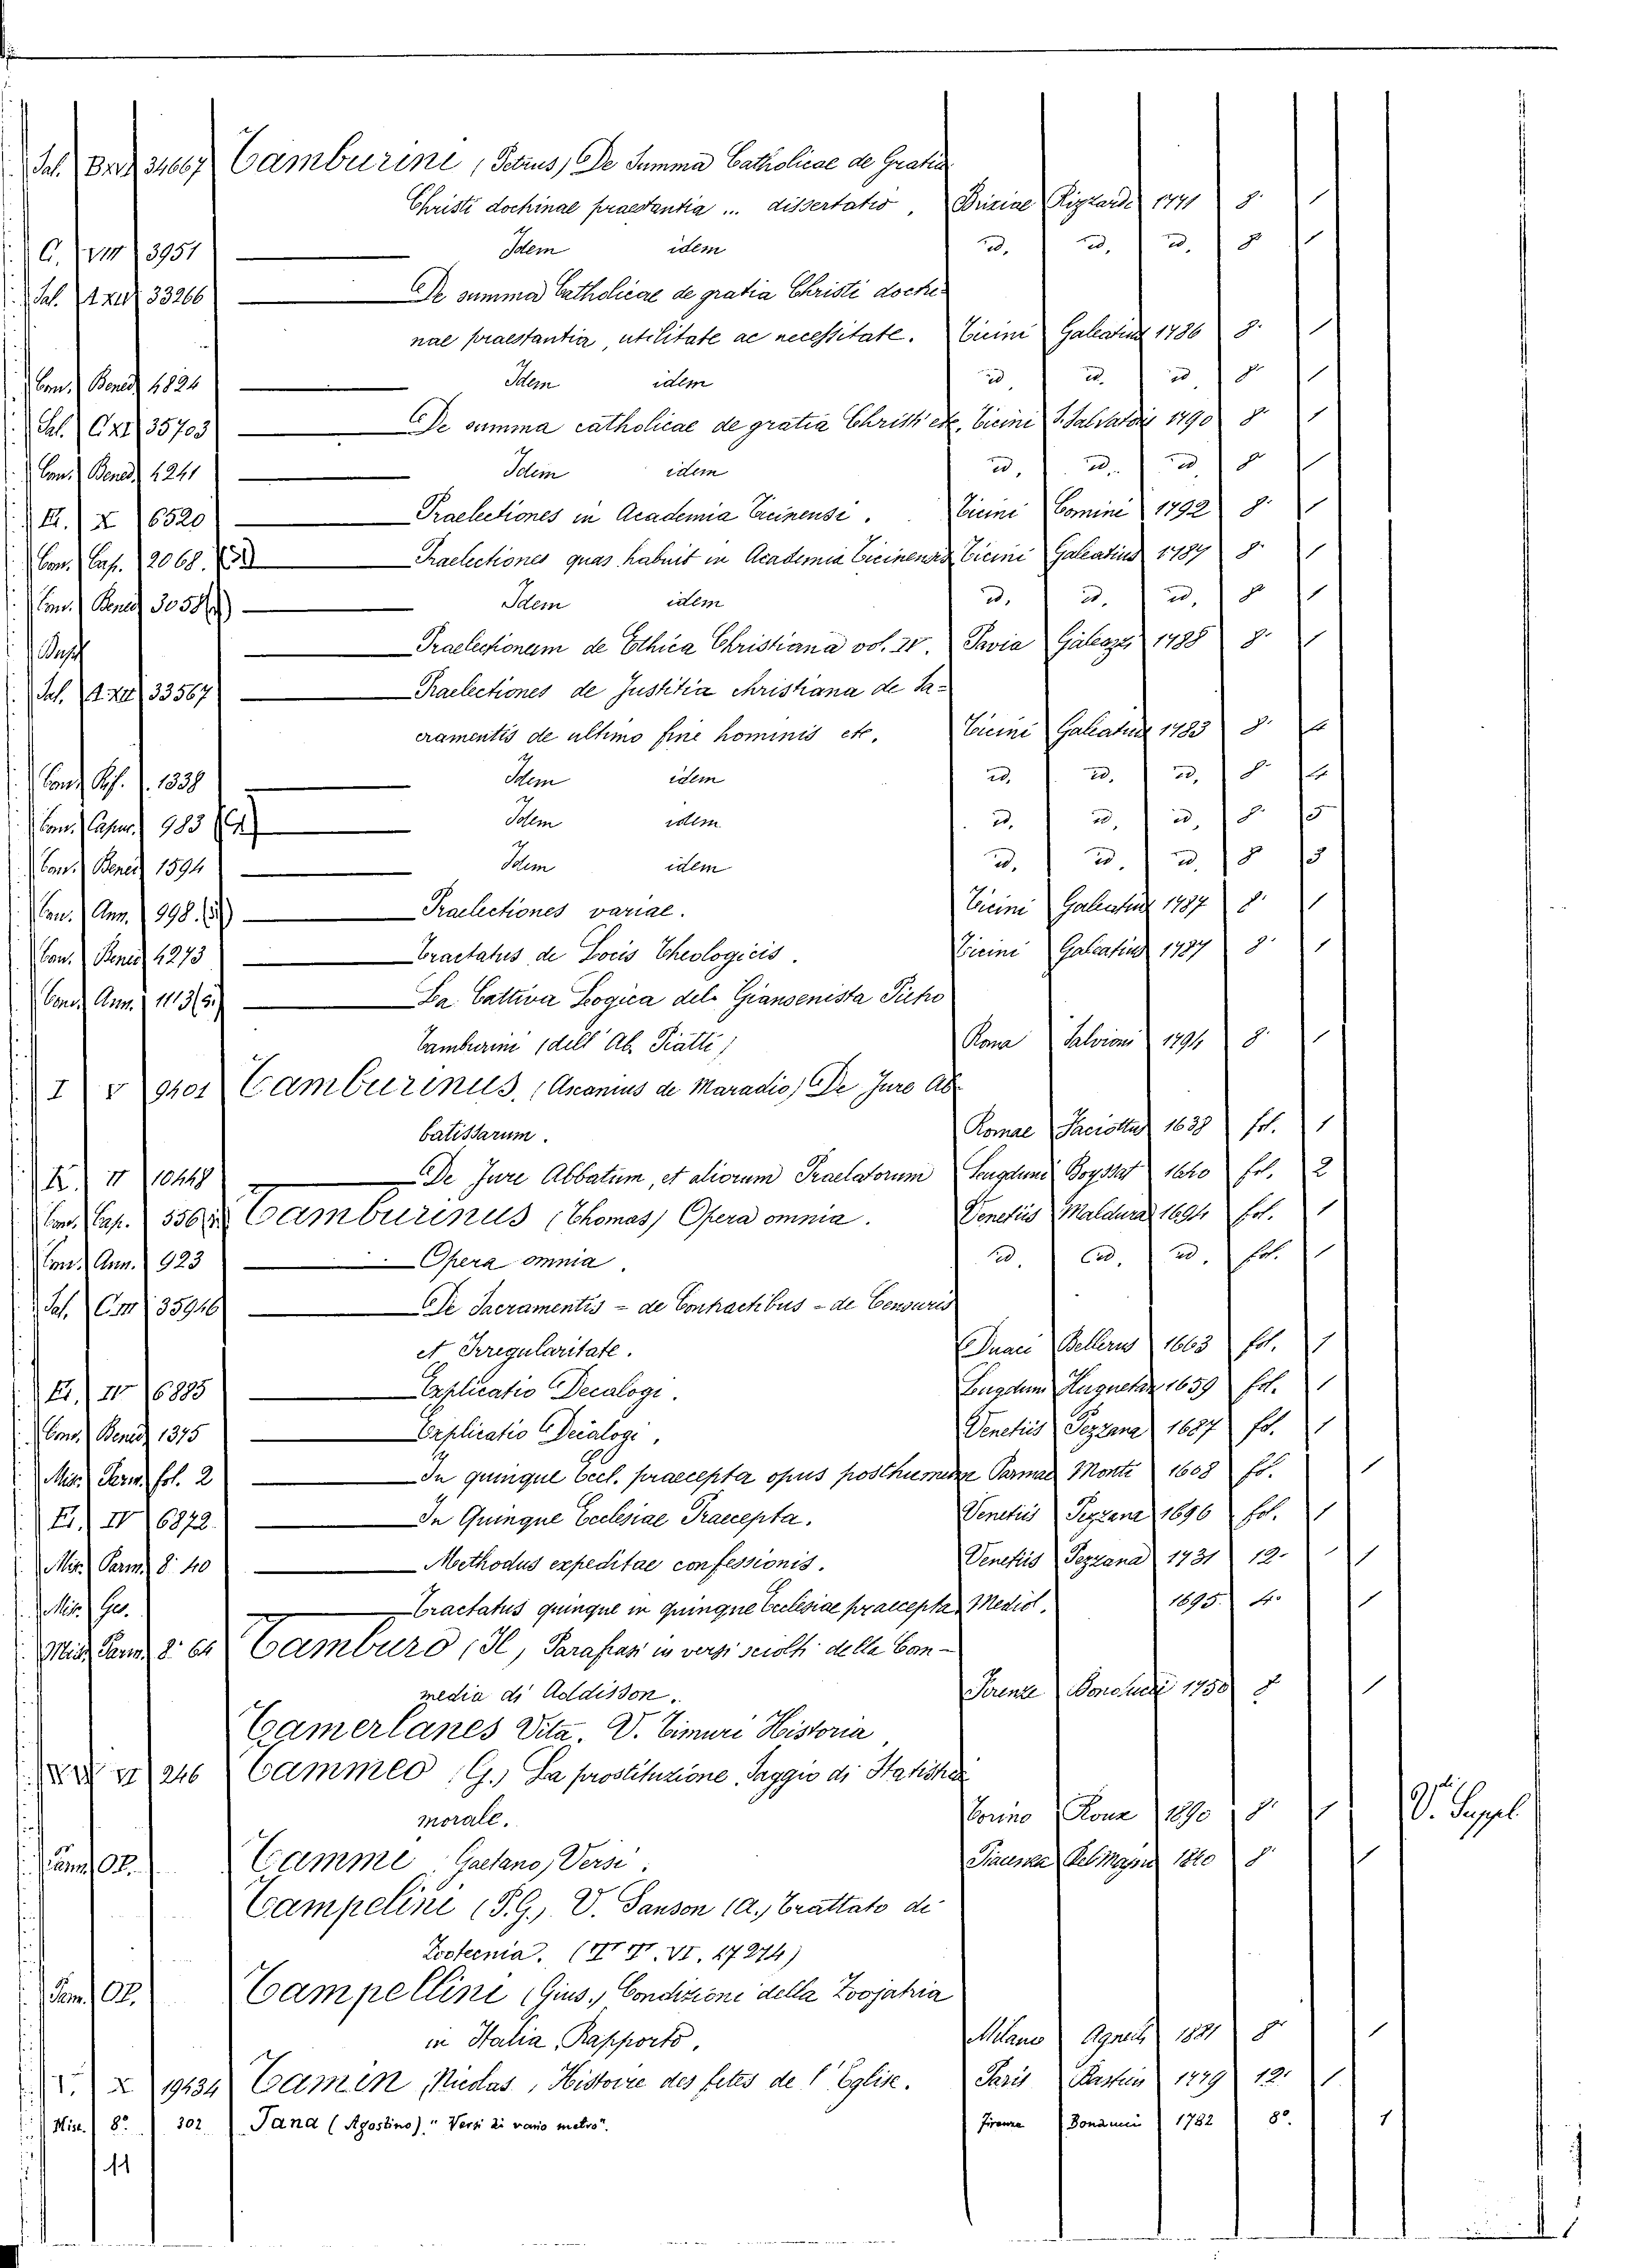 Sal. Brz 34667 Tamburini (Petrus) De Summa Catholicae de Gratia
Christi doctrinae praestantia ... dissertatio, Brixiae Rizzardi 1771 8. 1
C. VIII 3951 — Idem idem id. id. id. 8 1
Sal. A XII 33266 — De summa Catholicae de gratia Christi doctri-
nae praestantia, utilitate ac necessitate. Ticini Galeatius 1786 8. 1
Con. Bened. 4824 — Idem idem id. id. id. 8. 1
Sal. C XI 35703 — De summa catholicae de gratia Christi etc. Ticini S. Salvatoris 1790 8. 1
Con. Bened. 4241 — Idem idem id. id. id. 8 1
E. X 6520 — Praelectiones in Academia Ticinensi. Ticini Comini 1792 8. 1
Con. Cap. 2068. — Praelectiones quas habuit in Academia Ticinensis Ticini Galeatius 1787 8. 1
Con. Bened. 3058 — Idem idem id. id. id. 8 1
— Praelectionum de Ethica Christiana vol. IV. Pavia Galeazzi 1788 8. 1
Sal. A XII 33567 — Praelectiones de Justitia christiana de Sa-
cramentis de ultimo fine hominis etc. Ticini Galeatius 1783 8. 4
Con. Rif. 1338 — Idem idem id. id. id. 8. 4
Con. Capuc. 983 — Idem idem id. id. id. 8. 5
Con. Bened. 1594 — Idem idem id. id. id. 8 5
Con. Ann. 998. — Praelectiones variae. Ticini Galeatius 1787 8. 1
Con. Bened. 4273 — Tractatus de Locis Theologicis. Ticini Galeatius 1787 8. 1
Con. Ann. 1113 (5.) — La Cattiva Logica del Giansenista Pietro
Tamburini (dell' Ab. Piatti) Roma Salvioni 1794 8. 1
I V 9401 Tamburinus, (Ascanius de Maradio) De Jure Ab-
batissarum. Romae Faciottus 1638 fol. 1
K. II 10448 — De Jure Abbatum, et aliorum Praelatorum Lugduni Boyssat 1640 fol. 2
Con. Cap. 556 Tamburinus (Thomas) Opera omnia. Venetiis Maldura 1694 fol. 1
Con. Ann. 923 — Opera omnia. id. id. id. fol. 1
Sal. C III 35946 — De Sacramentis - de Contractibus - de Censuris
et Irregularitate. Duaci Bellerus 1663 fol. 1
E. IV 6885 — Explicatio Decalogi. Lugduni Huguetan 1659 fol. 1
Con. Bened. 1375 — Explicatio Decalogi, Venetiis Pezzana 1687 fol. 1
Mis. Parm. fol. 2 — In quinque Eccl. praecepta opus posthumum Parmae Monti 1608 fol. 1
E. IV 6872. — In Quinque Ecclesiae Praecepta. Venetiis Pezzana 1696 fol. 1
Mis. Parm. 8. 40 — Methodus expeditae confessionis. Venetiis Pezzana 1731 12. 1
Mis. Ges. — Tractatus quinque in quinque Ecclesiae praecepta, Mediol. 1695. 4. 1
Mis. Parm. 8. 64 Tamburo (Il), Parafrasi in versi sciolti della Com-
media di Addisson. Firenze Bonducci 1750 8 1
Tamerlanes Vita. V. Timuri Historia,
VI 246 Tammeo (G.) La prostituzione, Saggio di Statistica
morale. Torino Roux 1890 8. 1 V. Suppl
Parm. OP. Tamme Gaetano, Versi. Piacenza Del Majno 1840 8. 1
Tampelini (P.G.) V. Sanson (A.) Trattato di
Zootecnia. (VI. 17274)
Parm. OP. Tampellini (Gius.) Condizioni della Zoojatria
in Italia, Rapporto, Milano Agnelli 1881 8. 1
T. X 19434 Tamin Nicolas, Histoire des fetes de l' Eglise. Paris 1779 12. 1
Misc. 8. 302 Tana (Agostino) "Versi di vario metro". Firenze Bonducci 1782 8°. 1
11